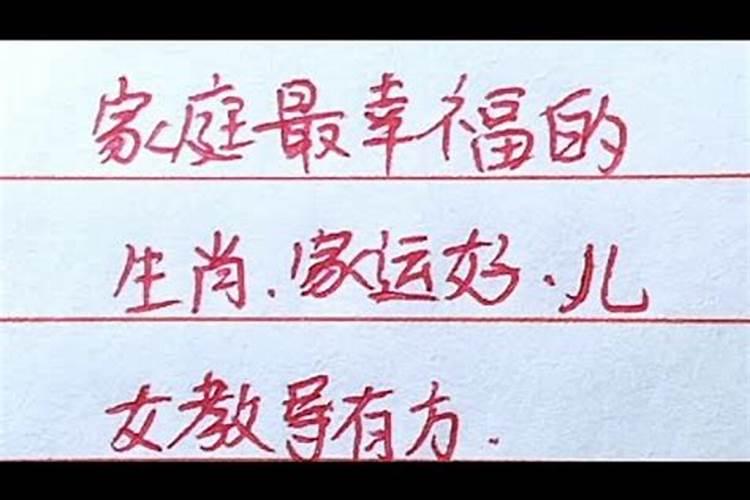 家庭最幸福的
生肖.家运好.儿
女教导有方.